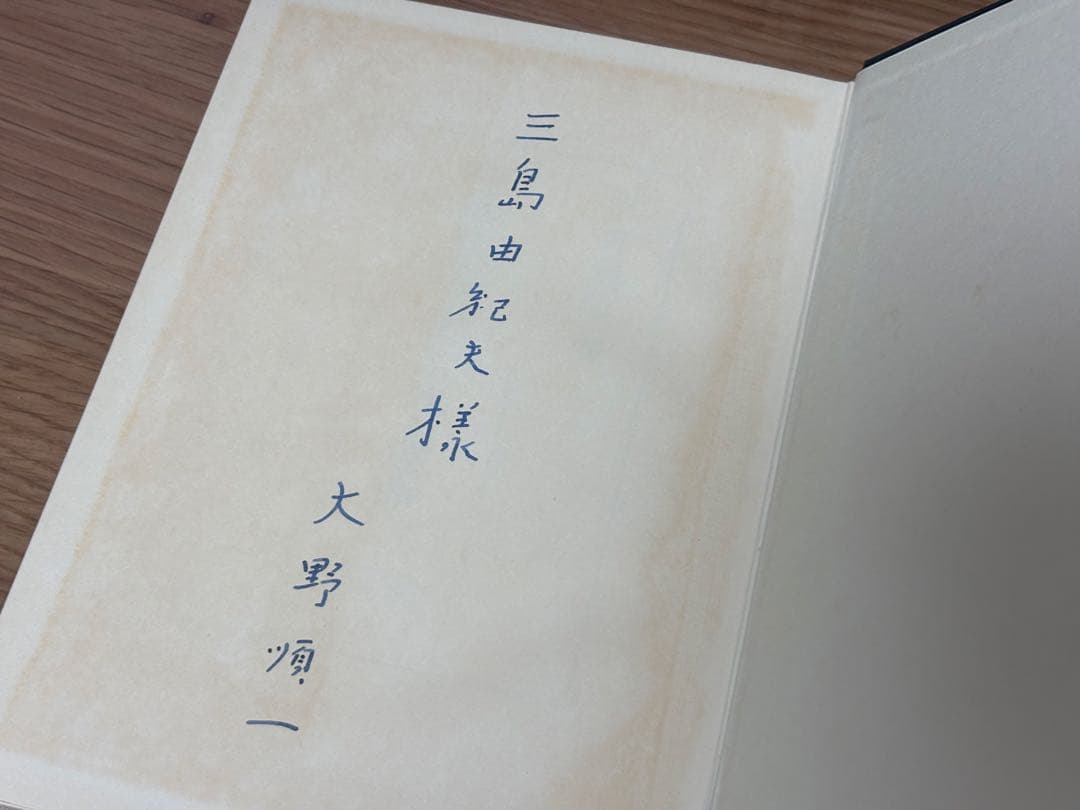 三島由紀夫様
大野順一